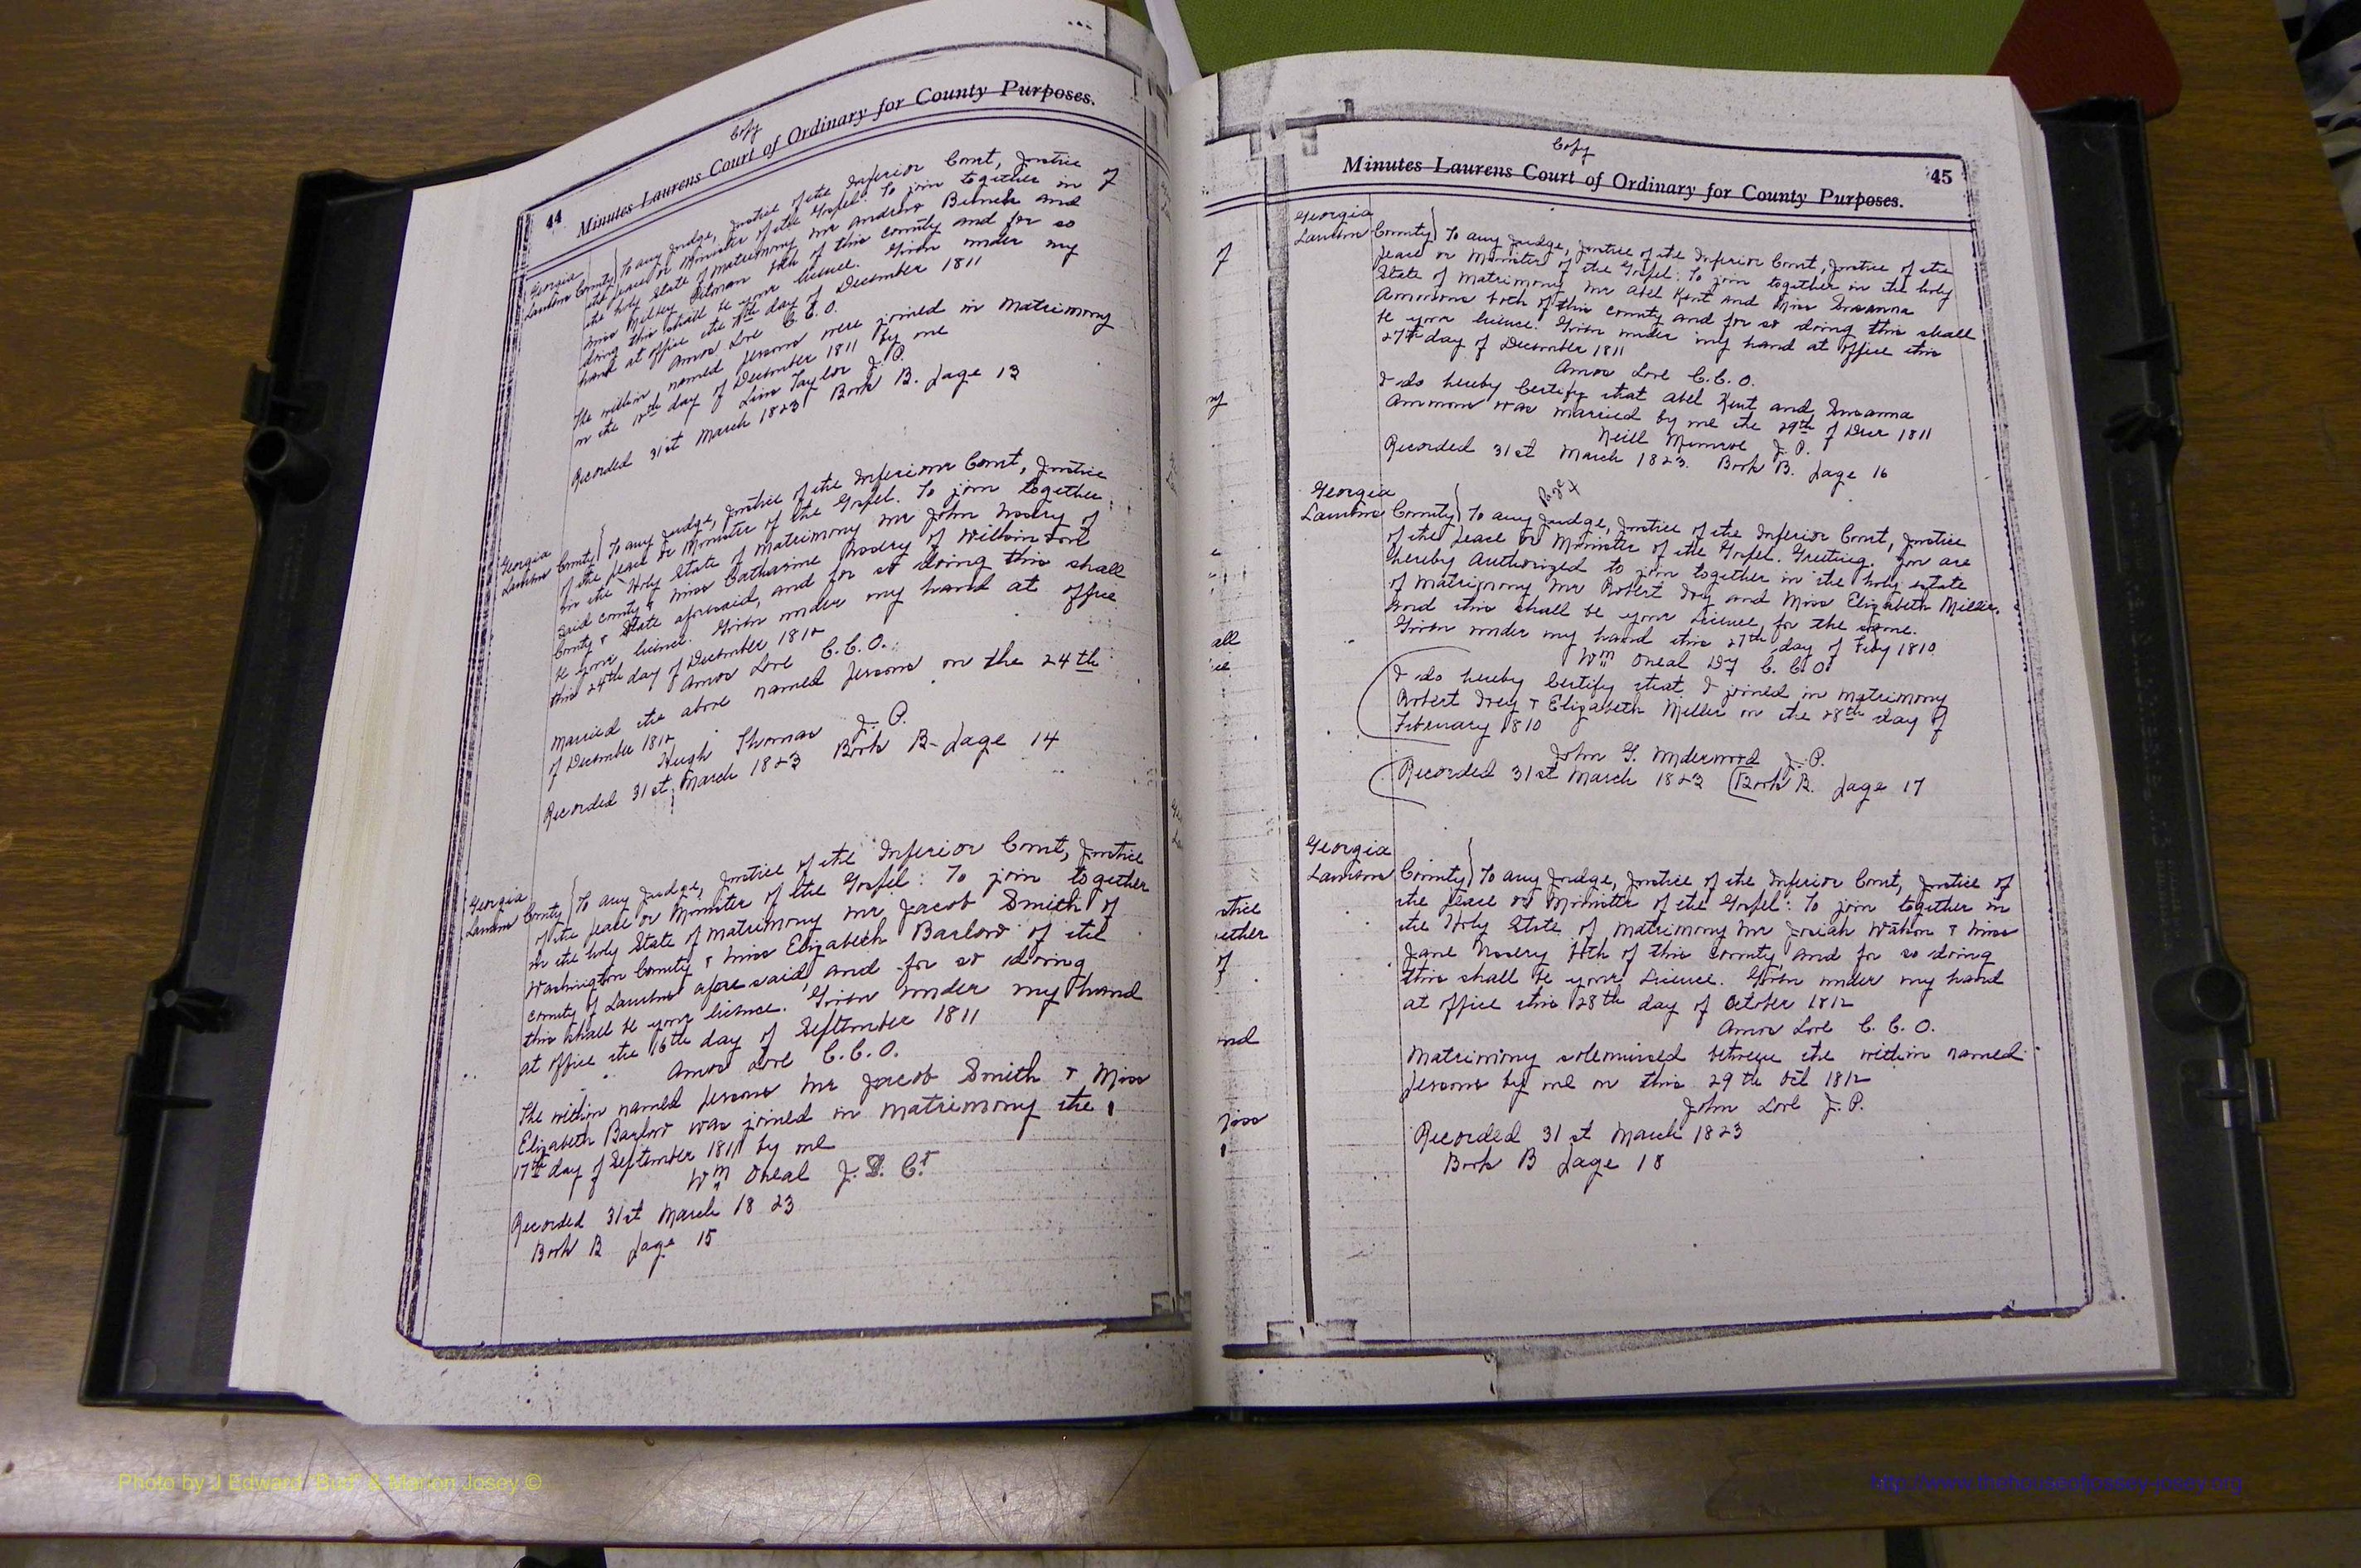 Copy
44 Minutes Laurens Court of Ordinary for County Purposes.
Georgia
Laurens County } To any Judge, Justice of the Inferior Court, Justice of
the peace or Minister of the Gospel: To join together in
the holy State of Matrimony Mr Andrew and
Miss Pitman both of this county and for so
doing this shall be your licence. Given under my
hand at office the day of December 1811
Amos Love C. C. O.
The within named persons were joined in Matrimony
on the day of December 1811 by me
Taylor J. P.
Recorded 31st March 1823 Book B. page 13
Georgia
Laurens County } To any Judge, Justice of the Inferiour Court, Justice
of the peace or Minister of the Gospel. To join together
in the Holy State of Matrimony Mr John of
said county & Miss Catharine of
County & State aforesaid, and for so doing this shall
be your licence. Given under my hand at office
this 24th day of December 1812
Amos Love C. C. O.
Married the above named persons on the 24th
of December 1812
Hugh Thomas J. P.
Recorded 31st March 1823 Book B- page 14
Georgia
Laurens County } To any Judge, Justice of the Inferior Court, Justice
of the peace or Minister of the Gospel: To join together
in the holy State of Matrimony Mr Jacob Smith of
Washington County & Miss Elizabeth Barlow of the
county of Laurens aforesaid, and for so doing
this shall be your licence. Given under my hand
at office the 16th day of September 1811
Amos Love C. C. O.
The within named persons Mr Jacob Smith & Miss
Elizabeth Barlow was joined in matrimony the
17th day of September 1811 by me
Wm Oneal J. I. Ct
Recorded 31st March 1823
Book B page 15
Copy
Minutes Laurens Court of Ordinary for County Purposes. 45
Georgia
Laurens County } To any Judge, Justice of the Inferior Court, Justice of the
peace or Minister of the Gospel: To join together in the holy
State of Matrimony Mr Abel Kent and Miss Susanna
Ammons both of this county and for so doing this shall
be your licence. Given under my hand at office this
27th day of December 1811
Amos Love C. C. O.
I do hereby Certify that Abel Kent and Susanna
Ammons was married by me the 29th of Decr 1811
Neill Munroe J. P.
Recorded 31st March 1823. Book B. page 16
Georgia
Laurens County } To any Judge, Justice of the Inferior Court, Justice
of the peace or Minister of the Gospel. Greeting. You are
hereby Authorized to join together in the holy estate
of matrimony Mr Robert Ivey and Miss Elizabeth Miller.
and this shall be your Licence for the same.
Given under my hand this 27th day of Feby 1810
Wm Oneal Dy C. C. O.
I do hereby Certify that I joined in matrimony
Robert Ivey & Elizabeth Miller on the 28th day of
February 1810
John G. Underwood J. P.
Recorded 31st March 1823 Book B. page 17
Georgia
Laurens County } To any Judge, Justice of the Inferior Court, Justice of
the peace or Minister of the Gospel: To join together in
the Holy State of Matrimony Mr Josiah & Miss
Jane both of this county and for so doing
this shall be your Licence. Given under my hand
at office this 28th day of October 1812
Amos Love C. C. O.
Matrimony solemnised between the within named
persons by me on this 29th Oct 1812
John Love J. P.
Recorded 31st March 1823
Book B page 18
Photo by J Edward "Bud" & Marion Josey ©
http://www.thehouseofjossey-josey.org